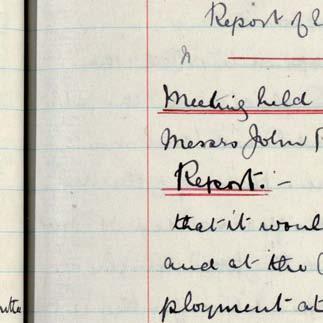 Report of
Meeting held
Messrs John
Report. -
that it woul
and at the
ployment at